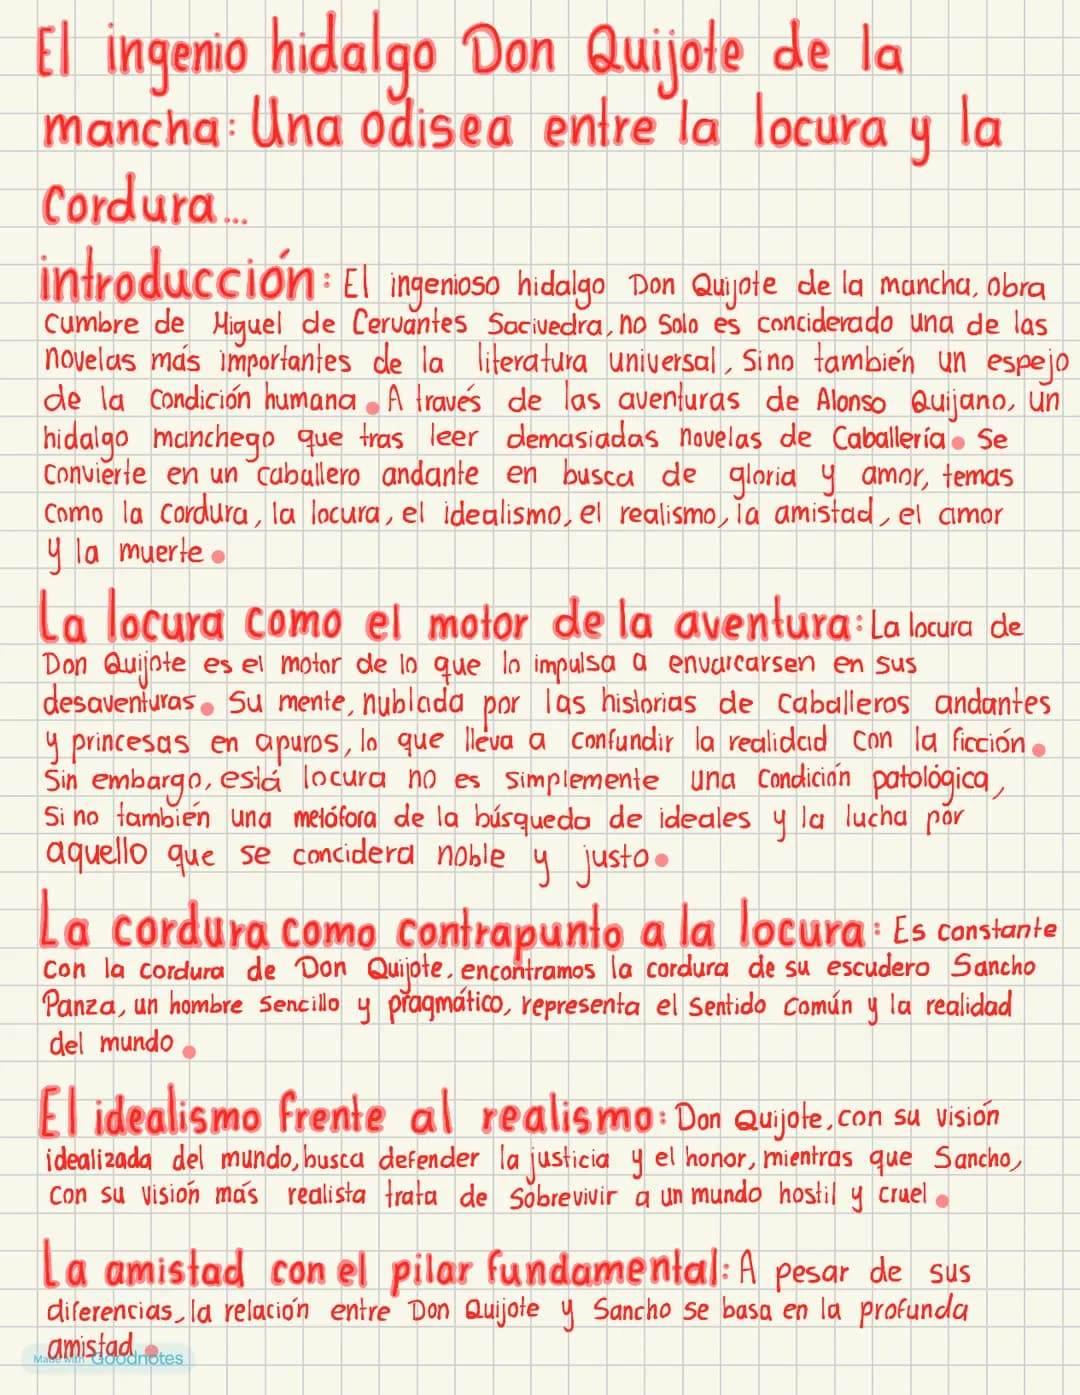 El ingenio hidalgo Don Quijote de la
mancha: Una odisea entre la locura y la
Cordura...
introducción: El ingenioso hidalgo Don Quijote de la mancha, obra
cumbre de Miguel de Cervantes Sacivedra, no solo es conciderado una de las
novelas más importantes de la literatura universal, Sino también un espejo
de la Condición humana. A través de las aventuras de Alonso Quijano, un
hidalgo manchego que tras leer demasiadas novelas de Caballería. Se
convierte en un caballero andante en busca de gloria y amor, temas
como la cordura, la locura, el idealismo, el realismo, la amistad, el amor
y la muerte.
La locura como el motor de la aventura: La locura de
Don Quijote es el motor de lo que lo impulsa a envarcarsen en sus
desaventuras. Su mente, nublada por las historias de Caballeros andantes
y princesas en apuros, lo que lleva a confundir la realidad con la ficción.
Sin embargo, está locura no es simplemente una Condición patológica,
Si no también una metófora de la búsqueda de ideales y la lucha por
aquello que se concidera noble y justo.
La cordura como contrapunto a la locura: Es constante
con la cordura de Don Quijote, encontramos la cordura de su escudero Sancho
Panza, un hombre Sencillo y pragmático, representa el Sentido Común y la realidad
del mundo.
El idealismo frente al realismo: Don Quijote, con su visión
idealizada del mundo, busca defender la justicia y el honor, mientras que Sancho,
con su visión más realista trata de Sobrevivir a un mundo hostil y cruel.
La amistad con el pilar fundamental: A pesar de sus
diferencias, la relación entre Don Quijote y Sancho se basa en la profunda
amistad.
Made with Goodnotes